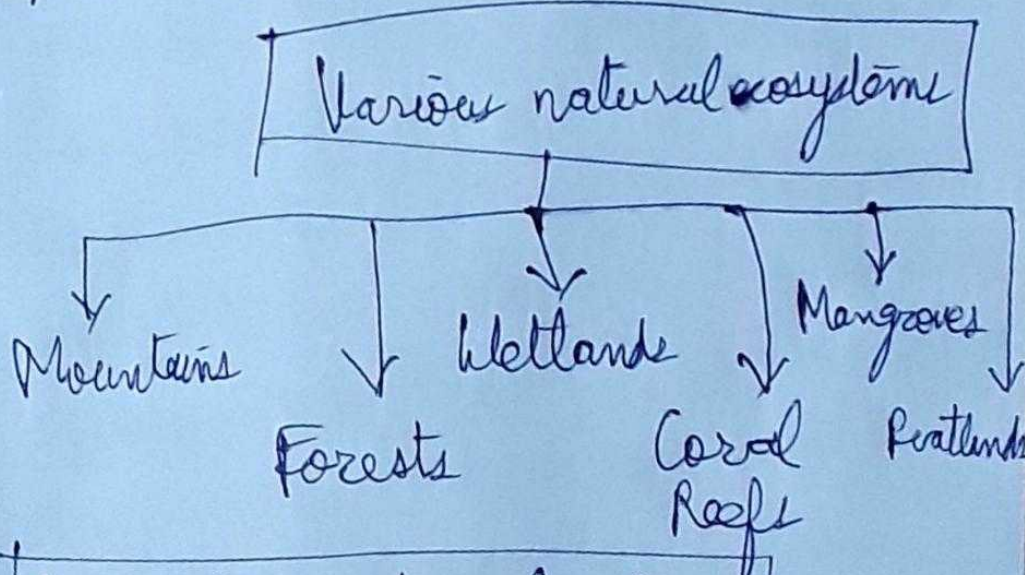 Various natural ecosystems
Mountains
Forests
Wetlands
Coral
Reefs
Mangroves
Peatlands